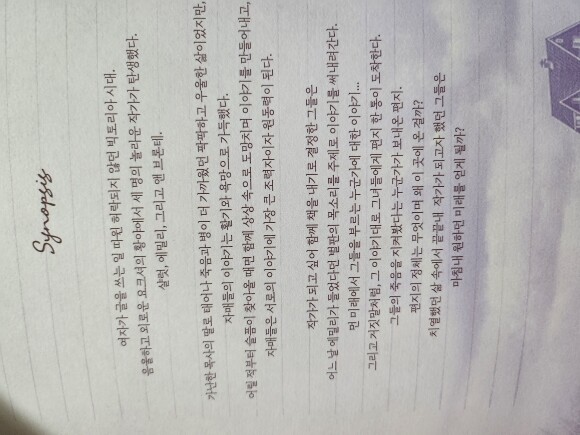 Synopsis
여자가 글을 쓰는 일 따윈 허락되지 않던 빅토리아 시대.
음울하고 외로운 요크셔의 황야에서 세 명의 놀라운 작가가 탄생했다.
샬럿, 에밀리, 그리고 앤 브론테.
가난한 목사의 딸로 태어나 죽음과 병이 더 가까웠던 팍팍하고 우울한 삶이었지만,
자매들의 이야기는 활기와 욕망으로 가득했다.
어릴 적부터 슬픔이 찾아올 때면 함께 상상 속으로 도망치며 이야기를 만들어내고,
자매들은 서로의 이야기에 가장 큰 조력자이자 원동력이 된다.
작가가 되고 싶어 함께 책을 내기로 결정한 그들은
어느 날 에밀리가 들었다던 벌판의 목소리를 주제로 이야기를 써내려간다.
먼 미래에서 그들을 부르는 누군가에 대한 이야기...
그리고 거짓말처럼, 그 이야기대로 그녀들에게 편지 한 통이 도착한다.
그들의 죽음을 지켜봤다는 누군가가 보내온 편지.
편지의 정체는 무엇이며 왜 이 곳에 온 걸까?
치열했던 삶 속에서 끝끝내 작가가 되고자 했던 그들은
마침내 원하던 미래를 얻게 될까?